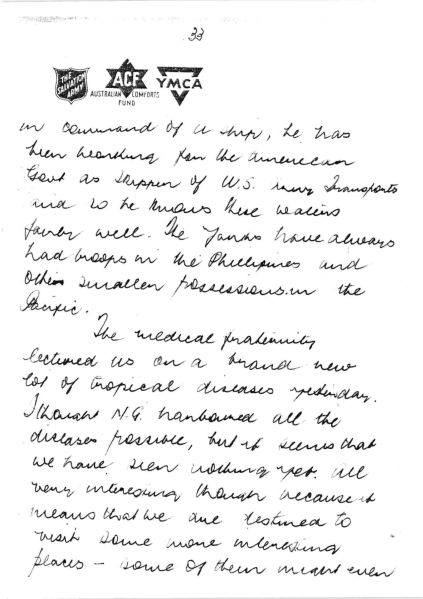 33
THE SALVATION ARMY
ACF
AUSTRALIAN COMFORTS FUND
YMCA
in command of a ship, he has
been working for the American
Govt as skipper of U.S. Transports
and so he knows these waters
fairly well. The Yanks have always
had troops in the Phillipines and
other smaller possessions in the
Pacific.
The medical fraternity
lectured us on a brand new
lot of tropical diseases yesterday.
I thought N.G. harboured all the
diseases possible, but it seems that
we have seen nothing yet. All
very interesting though because it
means that we are destined to
visit some more interesting
places – some of them might even